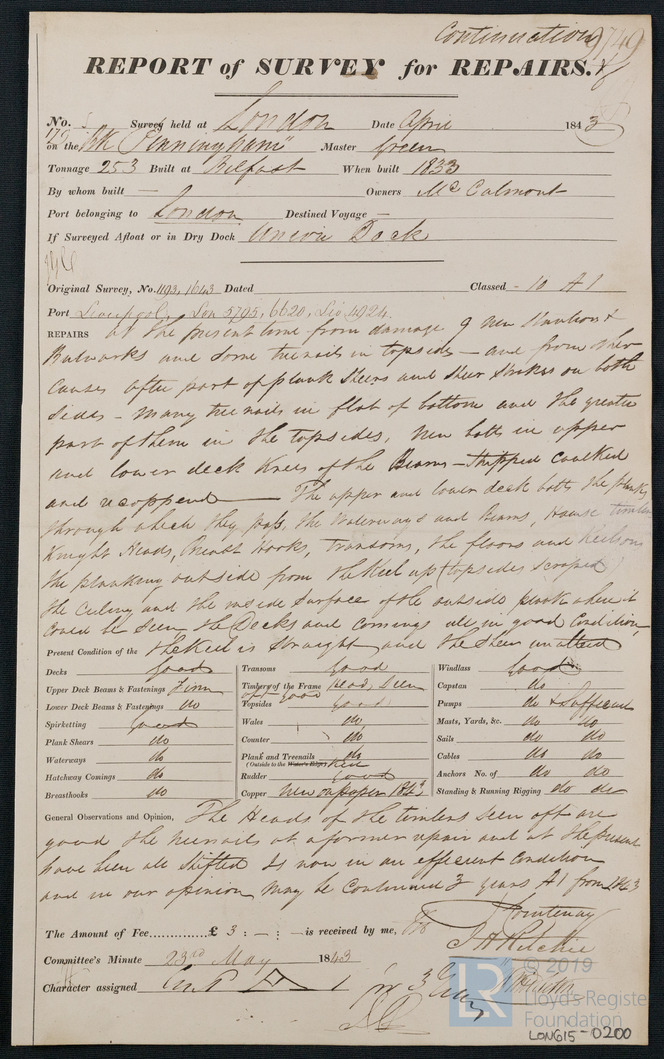 Continuation of
9749
REPORT of SURVEY for REPAIRS.
No. 179 Survey held at London Date April 1843
on the Bk "Pennyngham" Master Green
Tonnage 253 Built at Belfast When built 1833
By whom built — Owners McCalmont
Port belonging to London Destined Voyage —
If Surveyed Afloat or in Dry Dock Union Dock
Original Survey, No. 1193, 1643 Dated Classed - 10 A 1
Port Liverpool, Lon 5795, 6620, Liv 4924.
REPAIRS at the present time from damage 9 New Stantions &
Bulwarks and some treenails in topsides — and from other
causes after part of plank Sheers and Sheer Strakes on both
sides - many treenails in flat of bottom and the greater
part of them in the topsides, New bolts in upper
and lower deck Knees of the Beams — Stripped caulked
and recoppered — The upper and lower deck bolts, the planks
through which they pass, the Waterways and Beams, Hawse timbers
Knight Heads, Breast Hooks, Transoms, the floors and Keelson
the planking outside from the Keel up (topsides scraped)
the Ceiling and the inside surface of the outside plank where it
could be seen, the Decks and comings all in good Condition
Present Condition of the the Keel is Straight and the Sheer unaltered
Decks Good
Upper Deck Beams & Fastenings Firm
Lower Deck Beams & Fastenings do
Spirketting Good
Plank Shears do
Waterways do
Hatchway Comings do
Breasthooks do
Transoms Good
Timbers of the Frame Head, Seen
Good
Topsides Good
Wales do
Counter do
Plank and Treenails do
(Outside to the Water's Edge) Keel
Rudder Good
Copper New on paper 1843
Windlass Good
Capstan do
Pumps do & Sufficient
Masts, Yards, &c. do do
Sails do do
Cables do do
Anchors No. of do do
Standing & Running Rigging do do
General Observations and Opinion, The Heads of the timbers seen off are
good the treenails at a former repair and at the present
have been all shifted Is now in an efficient Condition
and in our opinion may be continued 3 years A1 from 1843
The Amount of Fee £ 3 : — : — is received by me,
Courtenay
J H Ritchie
Committee's Minute 23rd May 1843
Character assigned A 1 for 3 Years
LR
© 2019
Lloyd's Register
Foundation
LON615-0200